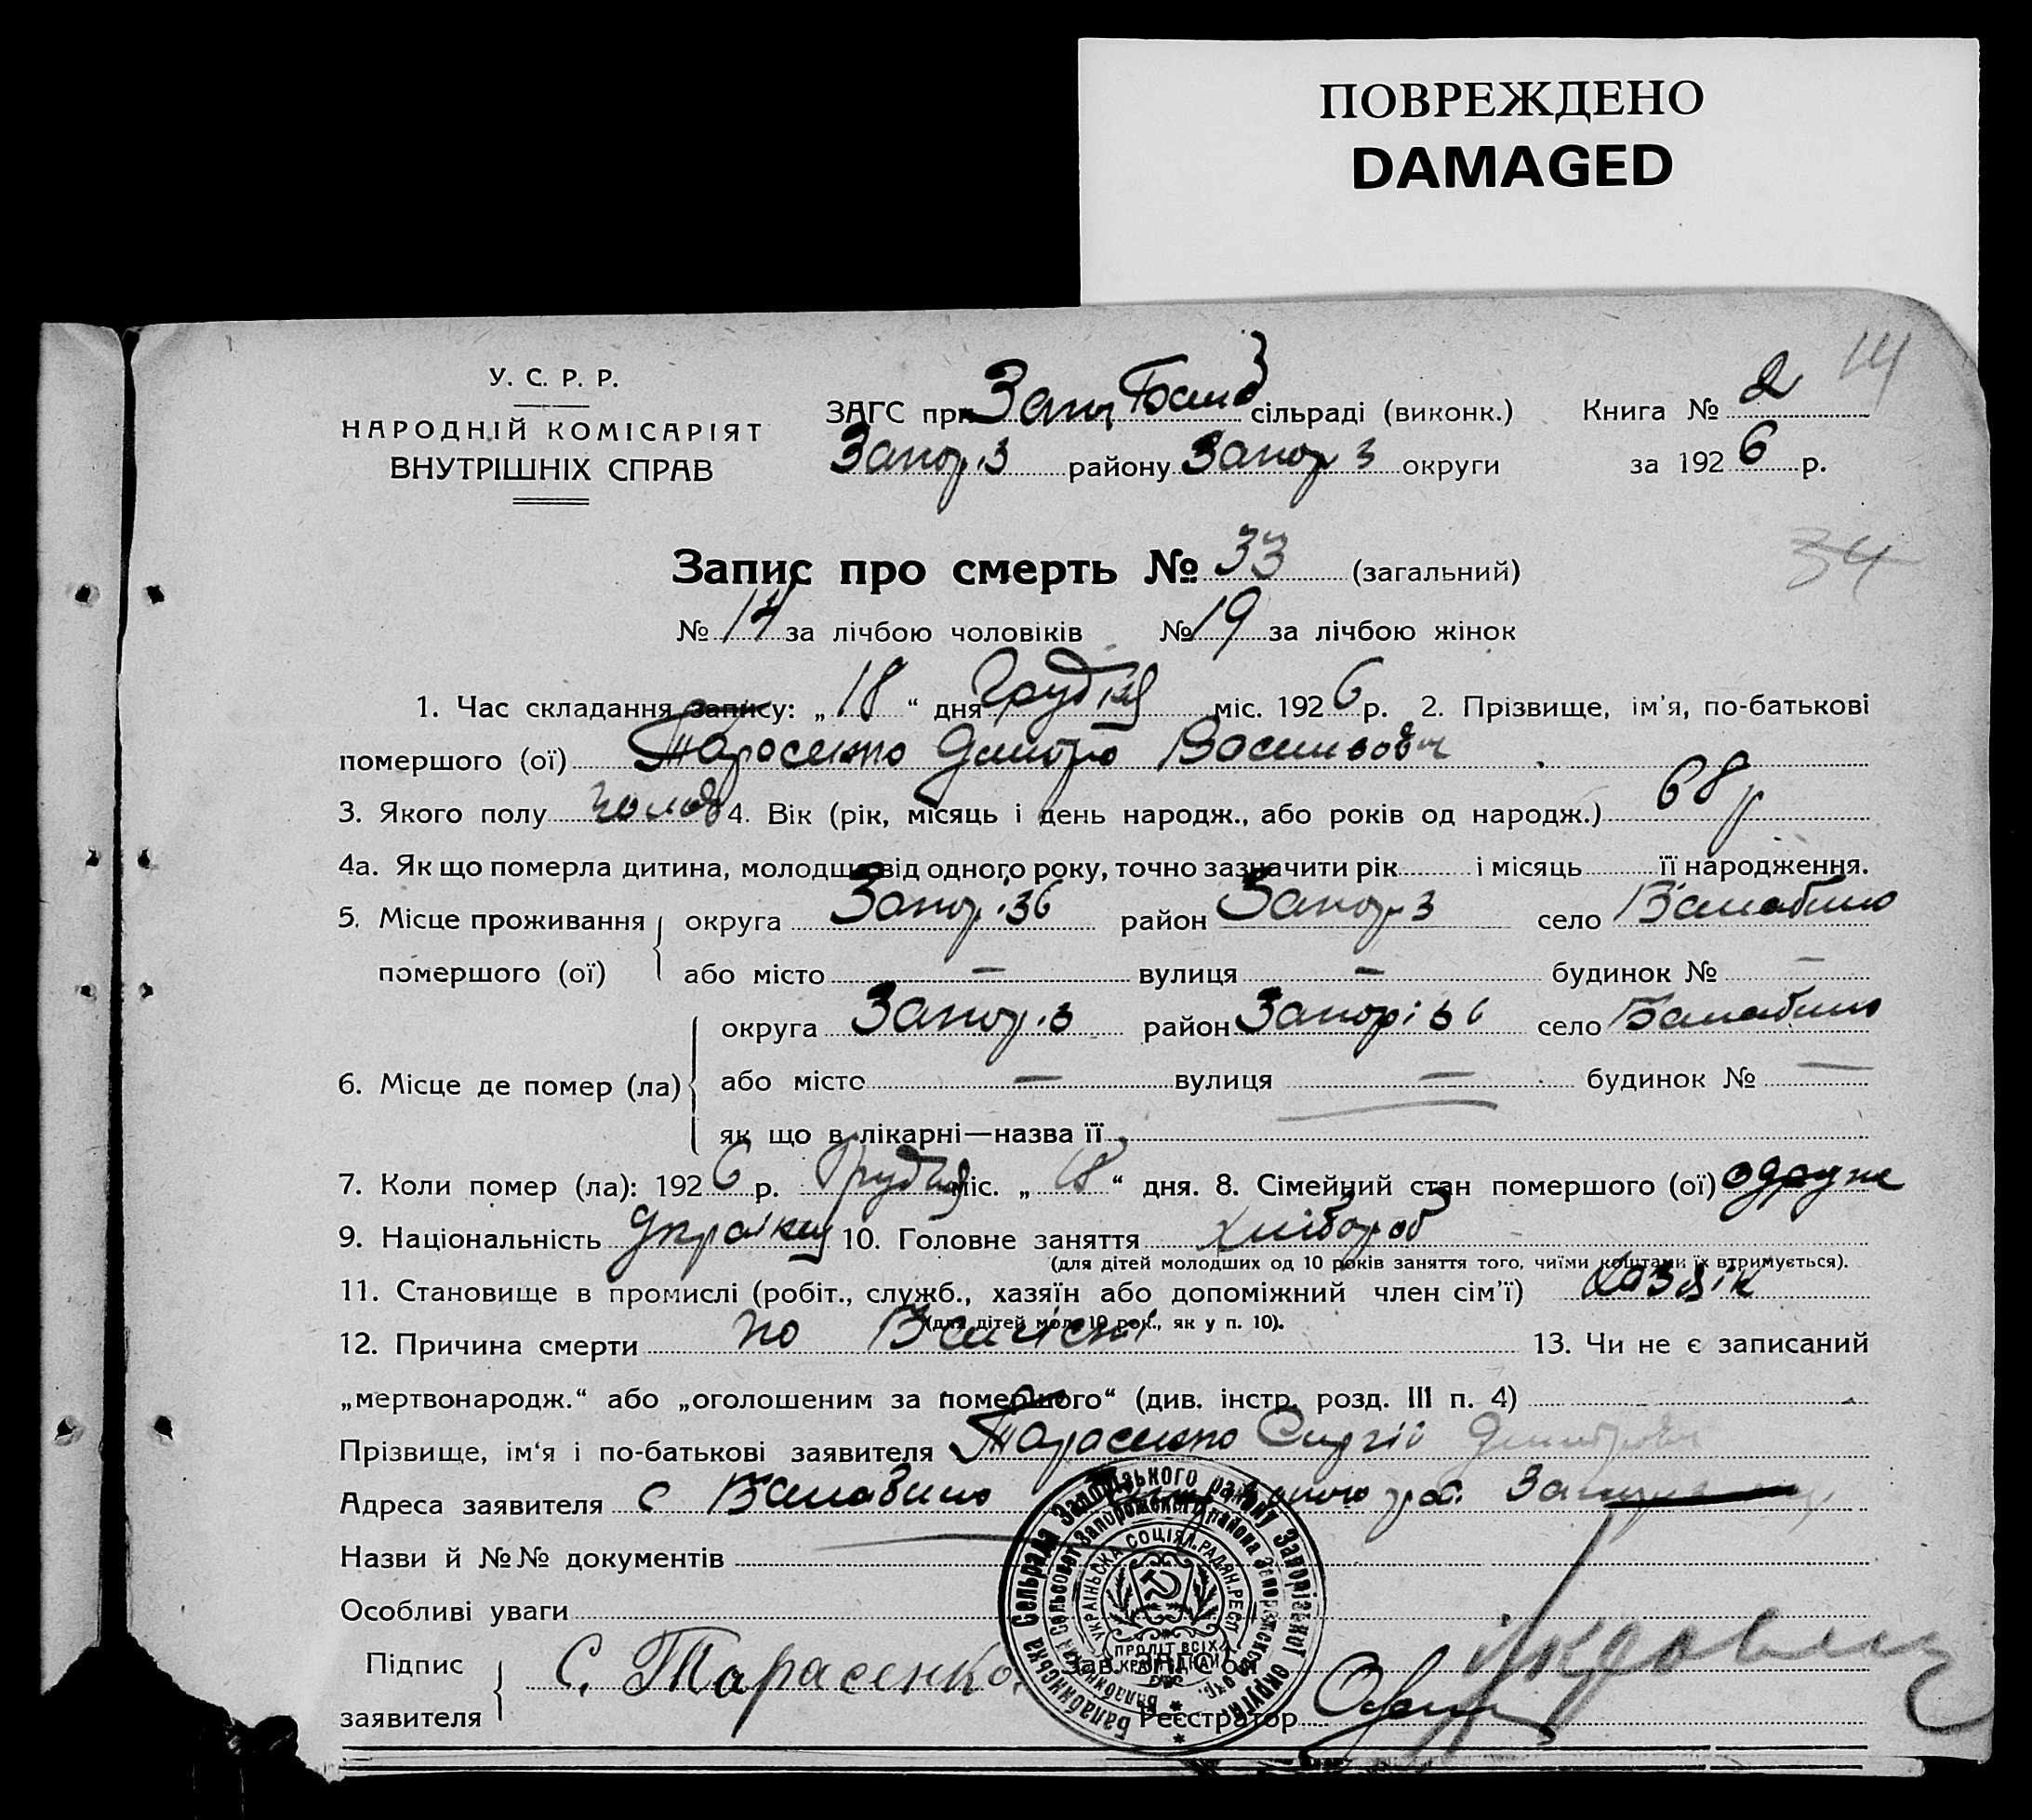 ПОВРЕЖДЕНО
DAMAGED
14
У. С. Р. Р.
НАРОДНІЙ КОМІСАРІЯТ
ВНУТРІШНІХ СПРАВ
ЗАГС при сільраді (виконк.) Книга № 2
Запор.з району Запор з округи за 1926 р.
34
Запис про смерть № 33 (загальний)
№ 14 за лічбою чоловіків № 19 за лічбою жінок
1. Час складання запису: „18“ дня Грудня міс. 1926 р. 2. Прізвище, ім'я, по-батькові
помершого (ої) Тарасенко Дмитро Васильович
3. Якого полу чолов 4. Вік (рік, місяць і день народж., або років од народж.) 68 р
4а. Як що померла дитина, молодша від одного року, точно зазначити рік і місяць її народження.
5. Місце проживання округа Запоріз район Запор з село Балабино
помершого (ої) або місто — вулиця — будинок № —
округа Запор.з район Запоріз село Балабино
6. Місце де помер (ла) або місто — вулиця — будинок № —
як що в лікарні—назва її
7. Коли помер (ла): 1926 р. Грудня міс. „18“ дня. 8. Сімейний стан помершого (ої) одруже
9. Національність 10. Головне заняття хлібороб
(для дітей молодших од 10 років заняття того, чиїми коштами їх втримується).
11. Становище в промислі (робіт., служб., хазяїн або допоміжний член сім'ї) хозяїн
(для дітей мол. 10 рок., як у п. 10).
12. Причина смерти по 13. Чи не є записаний
„мертвонародж.“ або „оголошеним за помершого“ (див. інстр. розд. III п. 4)
Прізвище, ім'я і по-батькові заявителя Тарасенко Сергій Дмитрович
Адреса заявителя с Балабино
Назви й №№ документів
Особливі уваги
Підпис
заявителя С. Тарасенко
Зав. ЗАГС'ом
Реєстратор
Балабинська Сельрада Запорізького району Запорізької округи
Балабинский Сельсовет Запорожского района Запорожского окр.
УКРАЇНСЬКА СОЦІЯЛ. РАДЯН. РЕСП.
ПРОЛІТ. ВСІХ КРАЇН ЄДНАЙ